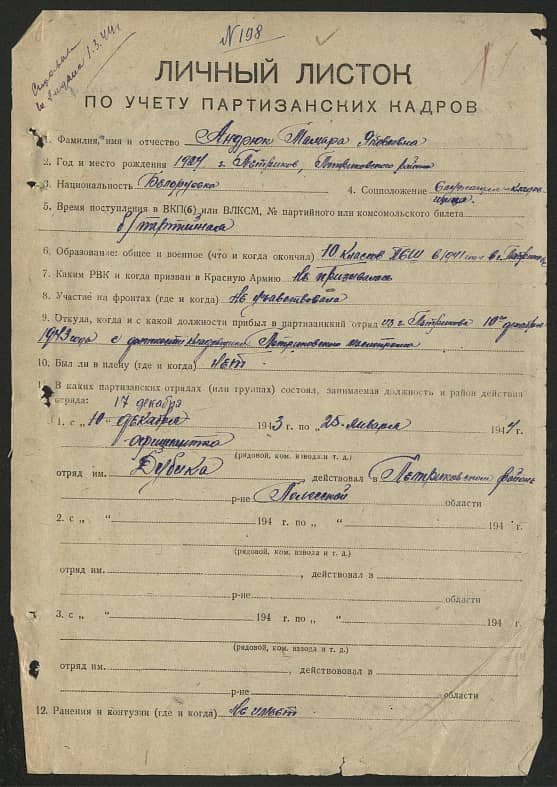 №198
ЛИЧНЫЙ ЛИСТОК
ПО УЧЕТУ ПАРТИЗАНСКИХ КАДРОВ
1. Фамилия, имя и отчество Андрюк Тамара Яковлевна
2. Год и место рождения 1924 г. Петриков, Петриковского района
3. Национальность Белорусска
4. Соцположение
5. Время поступления в ВКП(б) или ВЛКСМ, № партийного или комсомольского билета
б/партийная
6. Образование: общее и военное (что и когда окончил) 10 классов в 1941 в г.
7. Каким РВК и когда призван в Красную Армию Не призывалась
8. Участие на фронтах (где и когда) Не участвовала
9. Откуда, когда и с какой должности прибыл в партизанкий отряд из г. Петрикова 10го декабря
1943 года с должности Петриковского
10. Был ли в плену (где и когда) Нет
11. В каких партизанских отрядах (или группах) состоял, занимаемая должность и район действия
отряда: 17 декабря
1. с „ 10 “ декабря 1943 г. по „ 25 “ января 1944 г.
(рядовой, ком. взвода и т. д.)
отряд им. действовал в Петриковском районе
р-не Полесской области
2. с „ “ 194 г. по „ “ 194 г.
(рядовой, ком. взвода и т. д.)
отряд им. , действовал в
р-не области
3. с „ “ 194 г. по „ “ 194 г.
(рядовой, ком. взвода и т. д.)
отряд им. , действововал в
р-не области
12. Ранения и контузии (где и когда) Не имеет